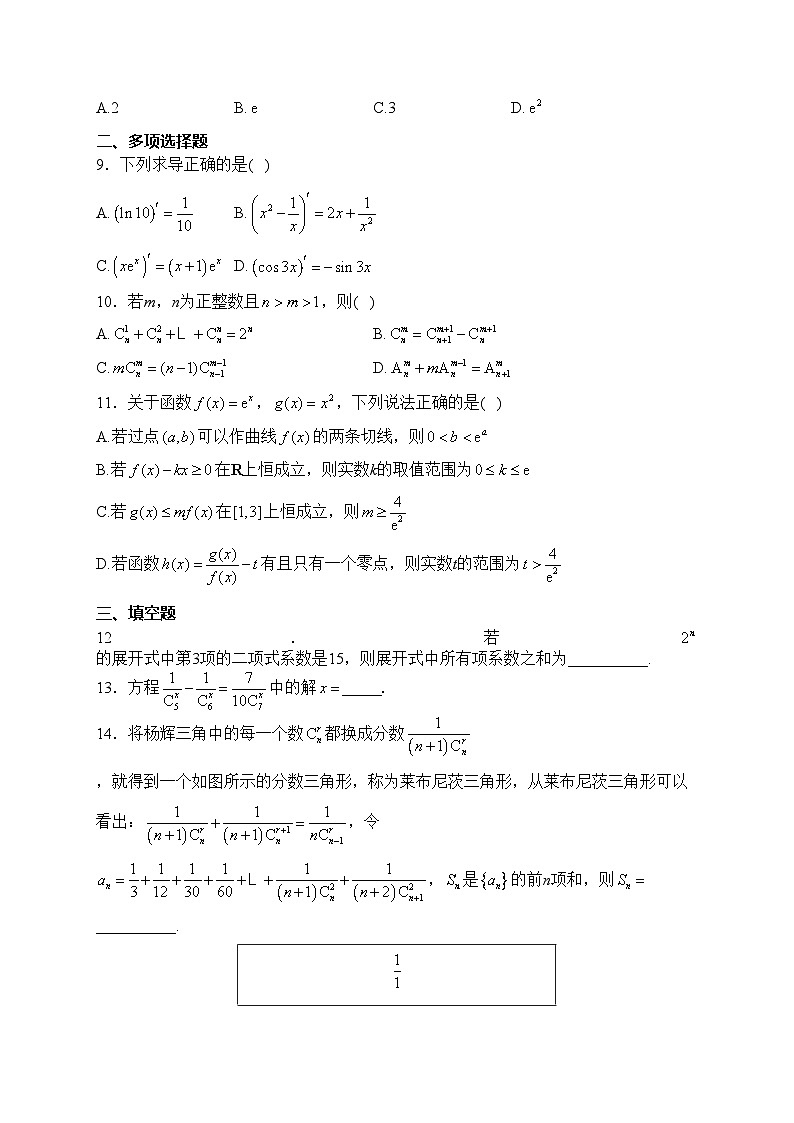 A.2 B. e C.3 D. e²
二、多项选择题
9．下列求导正确的是( )
A. (ln 10)^t = 1/10 B. (x² − 1/x)^t = 2x + 1/x²
C. (xe^x)^t = (x+1)e^x D. (cos 3x)^t = − sin 3x
10．若m，n为正整数且 n > m > 1，则( )
A. C_n^1 + C_n^2 + L + C_n^n = 2^n B. C_n^m = C_{n+1}^{m+1} − C_n^{m+1}
C. mC_n^m = (n−1)C_{n−1}^{m−1} D. A_n^m + mA_n^{m−1} = A_{n+1}^m
11．关于函数 f(x) = e^x，g(x) = x²，下列说法正确的是( )
A.若过点(a,b)可以作曲线 f(x) 的两条切线，则 0 < b < e^a
B.若 f(x) − kx ≥ 0 在R上恒成立，则实数k的取值范围为 0 ≤ k ≤ e
C.若 g(x) ≤ mf(x) 在[1,3]上恒成立，则 m ≥ 4/e²
D.若函数 h(x) = g(x)/f(x) − t 有且只有一个零点，则实数t的范围为 t > 4/e²
三、填空题
12 ． 若 2^n
的展开式中第3项的二项式系数是15，则展开式中所有项系数之和为__________.
13．方程 1/C_5^x − 1/C_6^x = 7/(10C_7^x) 中的解 x = _____．
14．将杨辉三角中的每一个数 C_n^r 都换成分数 1/((n+1)C_n^r)
，就得到一个如图所示的分数三角形，称为莱布尼茨三角形，从莱布尼茨三角形可以
看出：1/((n+1)C_n^r) + 1/((n+1)C_n^{r+1}) = 1/(nC_{n−1}^r)，令
a_n = 1/3 + 1/12 + 1/30 + 1/60 + L + 1/((n+1)C_n^2) + 1/((n+2)C_{n+1}^2)，S_n 是{a_n}的前n项和，则 S_n =
__________.
1/1